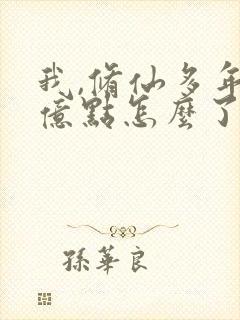 我,脩仙多年
億點怎麼了
孫華良